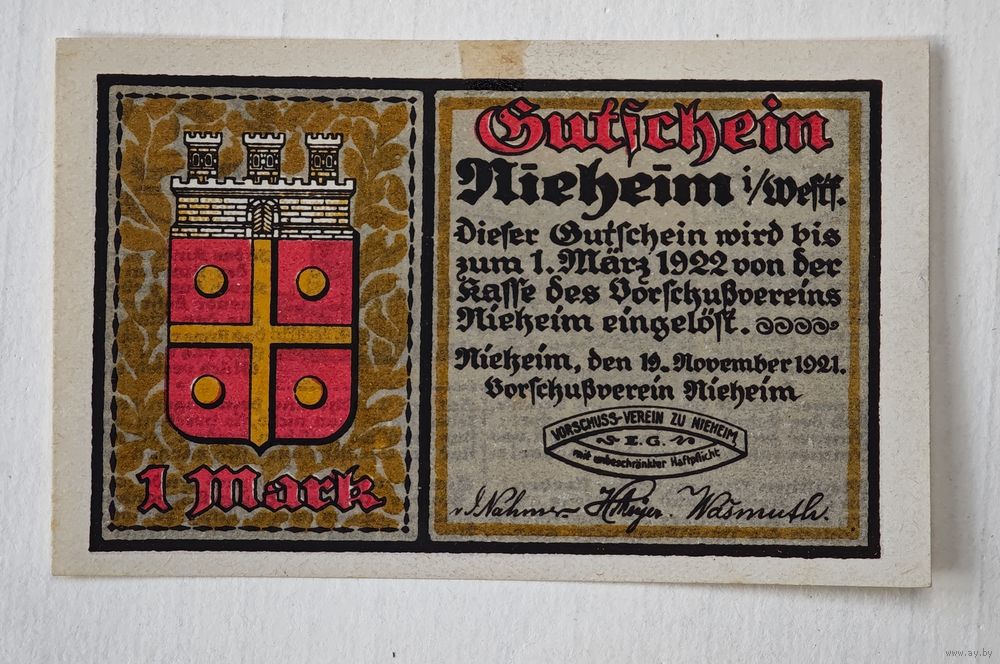 Gutschein
Nieheim i/Westf.
Dieser Gutschein wird bis
zum 1. März 1922 von der
Kasse des Vorschußvereins
Nieheim eingelöst.
Nieheim, den 19. November 1921.
Vorschußverein Nieheim
VORSCHUSS-VEREIN ZU NIEHEIM
E.G.
mit unbeschränkter Haftpflicht
Wasmuth.
1 Mark
www.ay.by